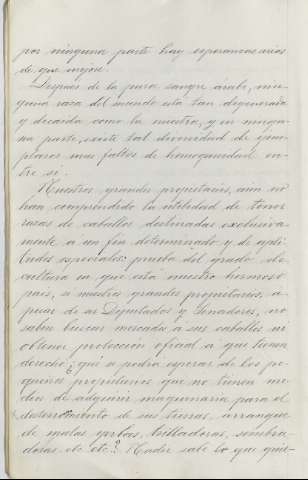 por ninguna parte hay esperanzas
de que mejore.
Después de la pura sangre árabe, nin-
guna raza del mundo está tan degenerada
y decaida como la nuestra, y en ningu-
na parte, existe tal diversidad de ejem-
plares mas faltos de homogeneidad en-
tre si.
Nuestros grandes propietarios, aún no
han comprendido la utilidad de tener
razas de caballos destinadas exclusiva-
mente a un fin determinado y de apti-
tudes especiales: prueba del grado de
cultura en que está nuestro hermoso
pais, si nuestros grandes propietarios, a
pesar de ser Diputados y Senadores, no
saben buscar mercados a sus caballos ni
obtener protección oficial a que tienen
derecho ¿qué se podría esperar de los pe-
queños propietarios que no tienen me-
dios de adquirir maquinaria para el
de sus tierras, arranque
de malas yerbas, trilladoras, sembra-
doras, etc etc.? Nadie sabe lo que quie-